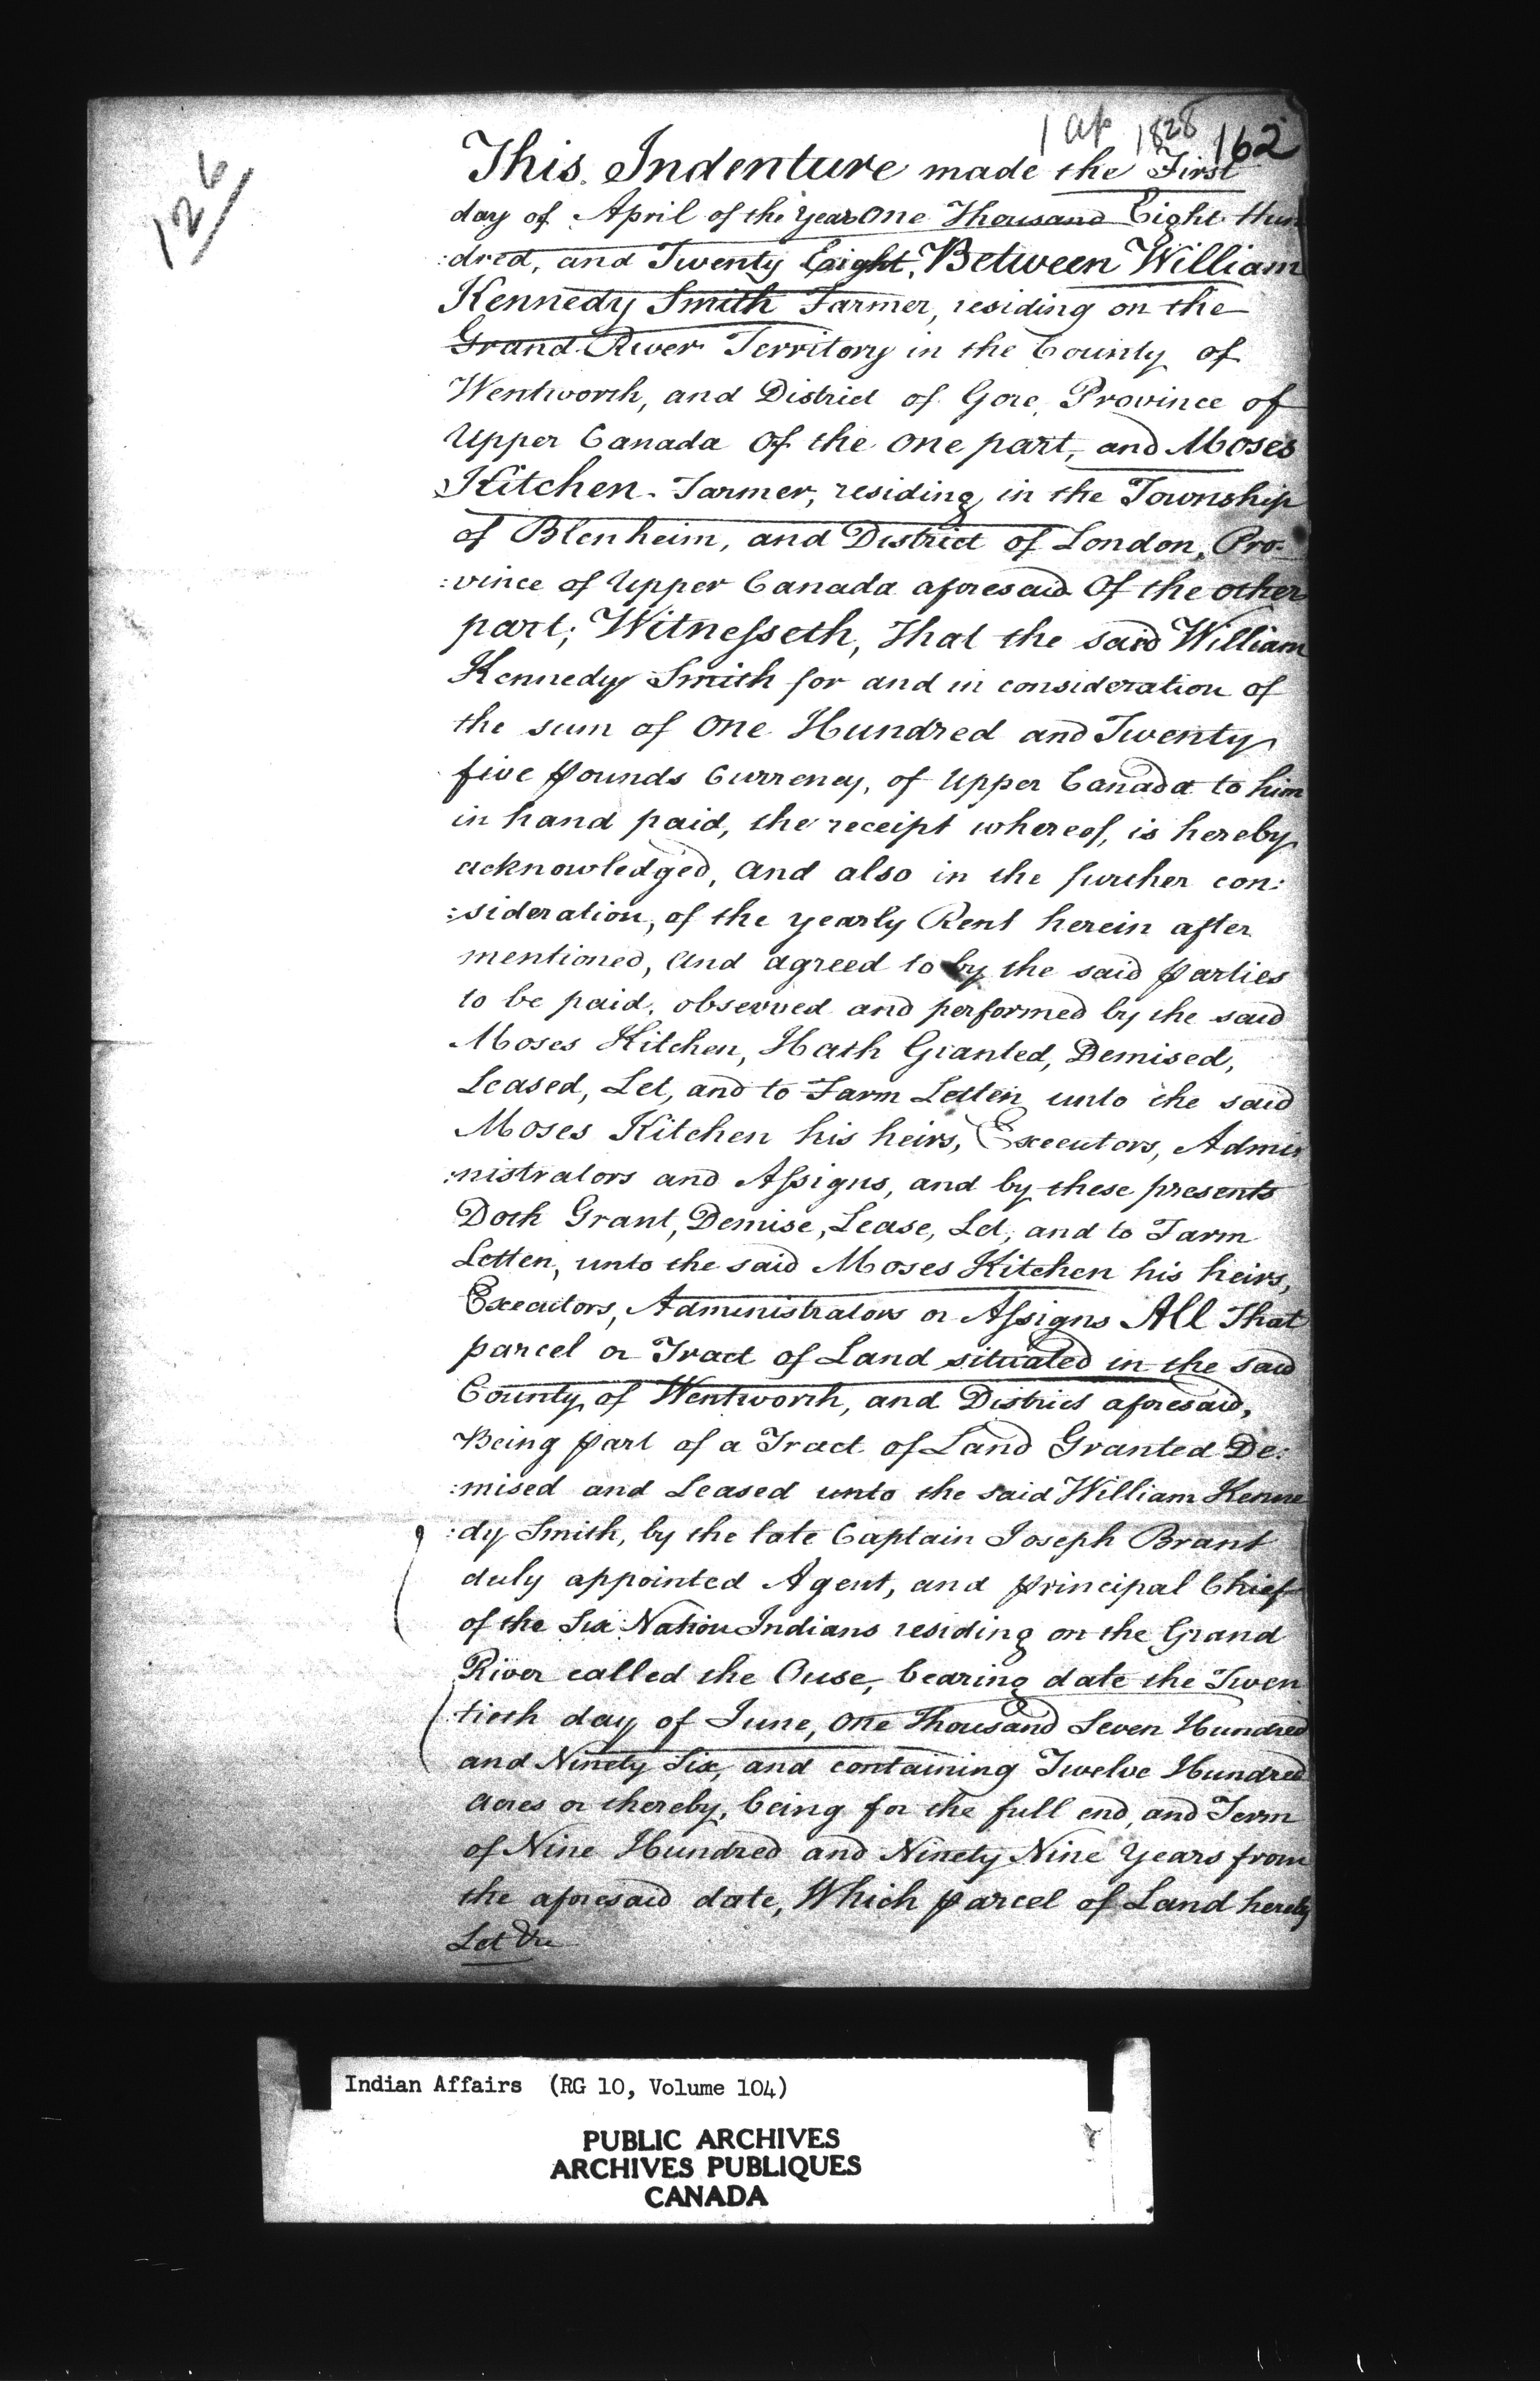 1 Ap 1828 162
126
This Indenture made the First
day of April of the Year One Thousand Eight Hun
:dred, and Twenty Eight, Between William
Kennedy Smith Farmer, residing on the
Grand River Territory in the County of
Wentworth, and District of Gore, Province of
Upper Canada Of the One part, and Moses
Kitchen Farmer, residing in the Township
of Blenheim, and District of London, Pro:
:vince of Upper Canada aforesaid Of the other
part; Witnesseth, That the said William
Kennedy Smith for and in consideration of
the sum of One Hundred and Twenty
five pounds Currency, of Upper Canada to him
in hand paid, the receipt whereof, is hereby
acknowledged, and also in the further con:
:sideration, of the yearly Rent herein after
mentioned, and agreed to by the said parties
to be paid, observed and performed by the said
Moses Kitchen, Hath Granted, Demised,
Leased, Let, and to Farm Letten unto the said
Moses Kitchen his heirs, Executors, Admi
:nistrators and Assigns, and by these presents
Doth Grant, Demise, Lease, Let, and to Farm
Letten, unto the said Moses Kitchen his heirs,
Executors, Administrators or Assigns All That
parcel or Tract of Land situated in the said
County of Wentworth, and District aforesaid,
Being part of a Tract of Land Granted De:
:mised and Leased unto the said William Kenne
:dy Smith, by the late Captain Joseph Brant
duly appointed Agent, and principal Chief
of the Six Nation Indians residing on the Grand
River called the Ouse, bearing date the Twen
:tieth day of June, One Thousand Seven Hundred
and Ninety Six, and containing Twelve Hundred
Acres or thereby, being for the full end, and Term
of Nine Hundred and Ninety Nine Years from
the aforesaid date, Which parcel of Land hereby
Let &c
Indian Affairs (RG 10, Volume 104)
PUBLIC ARCHIVES
ARCHIVES PUBLIQUES
CANADA